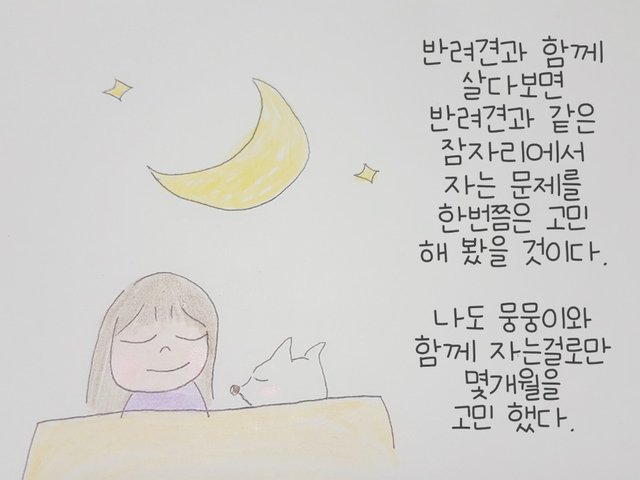 반려견과 함께
살다보면
반려견과 같은
잠자리에서
자는 문제를
한번쯤은 고민
해 봤을 것이다.
나도 뭉뭉이와
함께 자는걸로만
몇개월을
고민 했다.